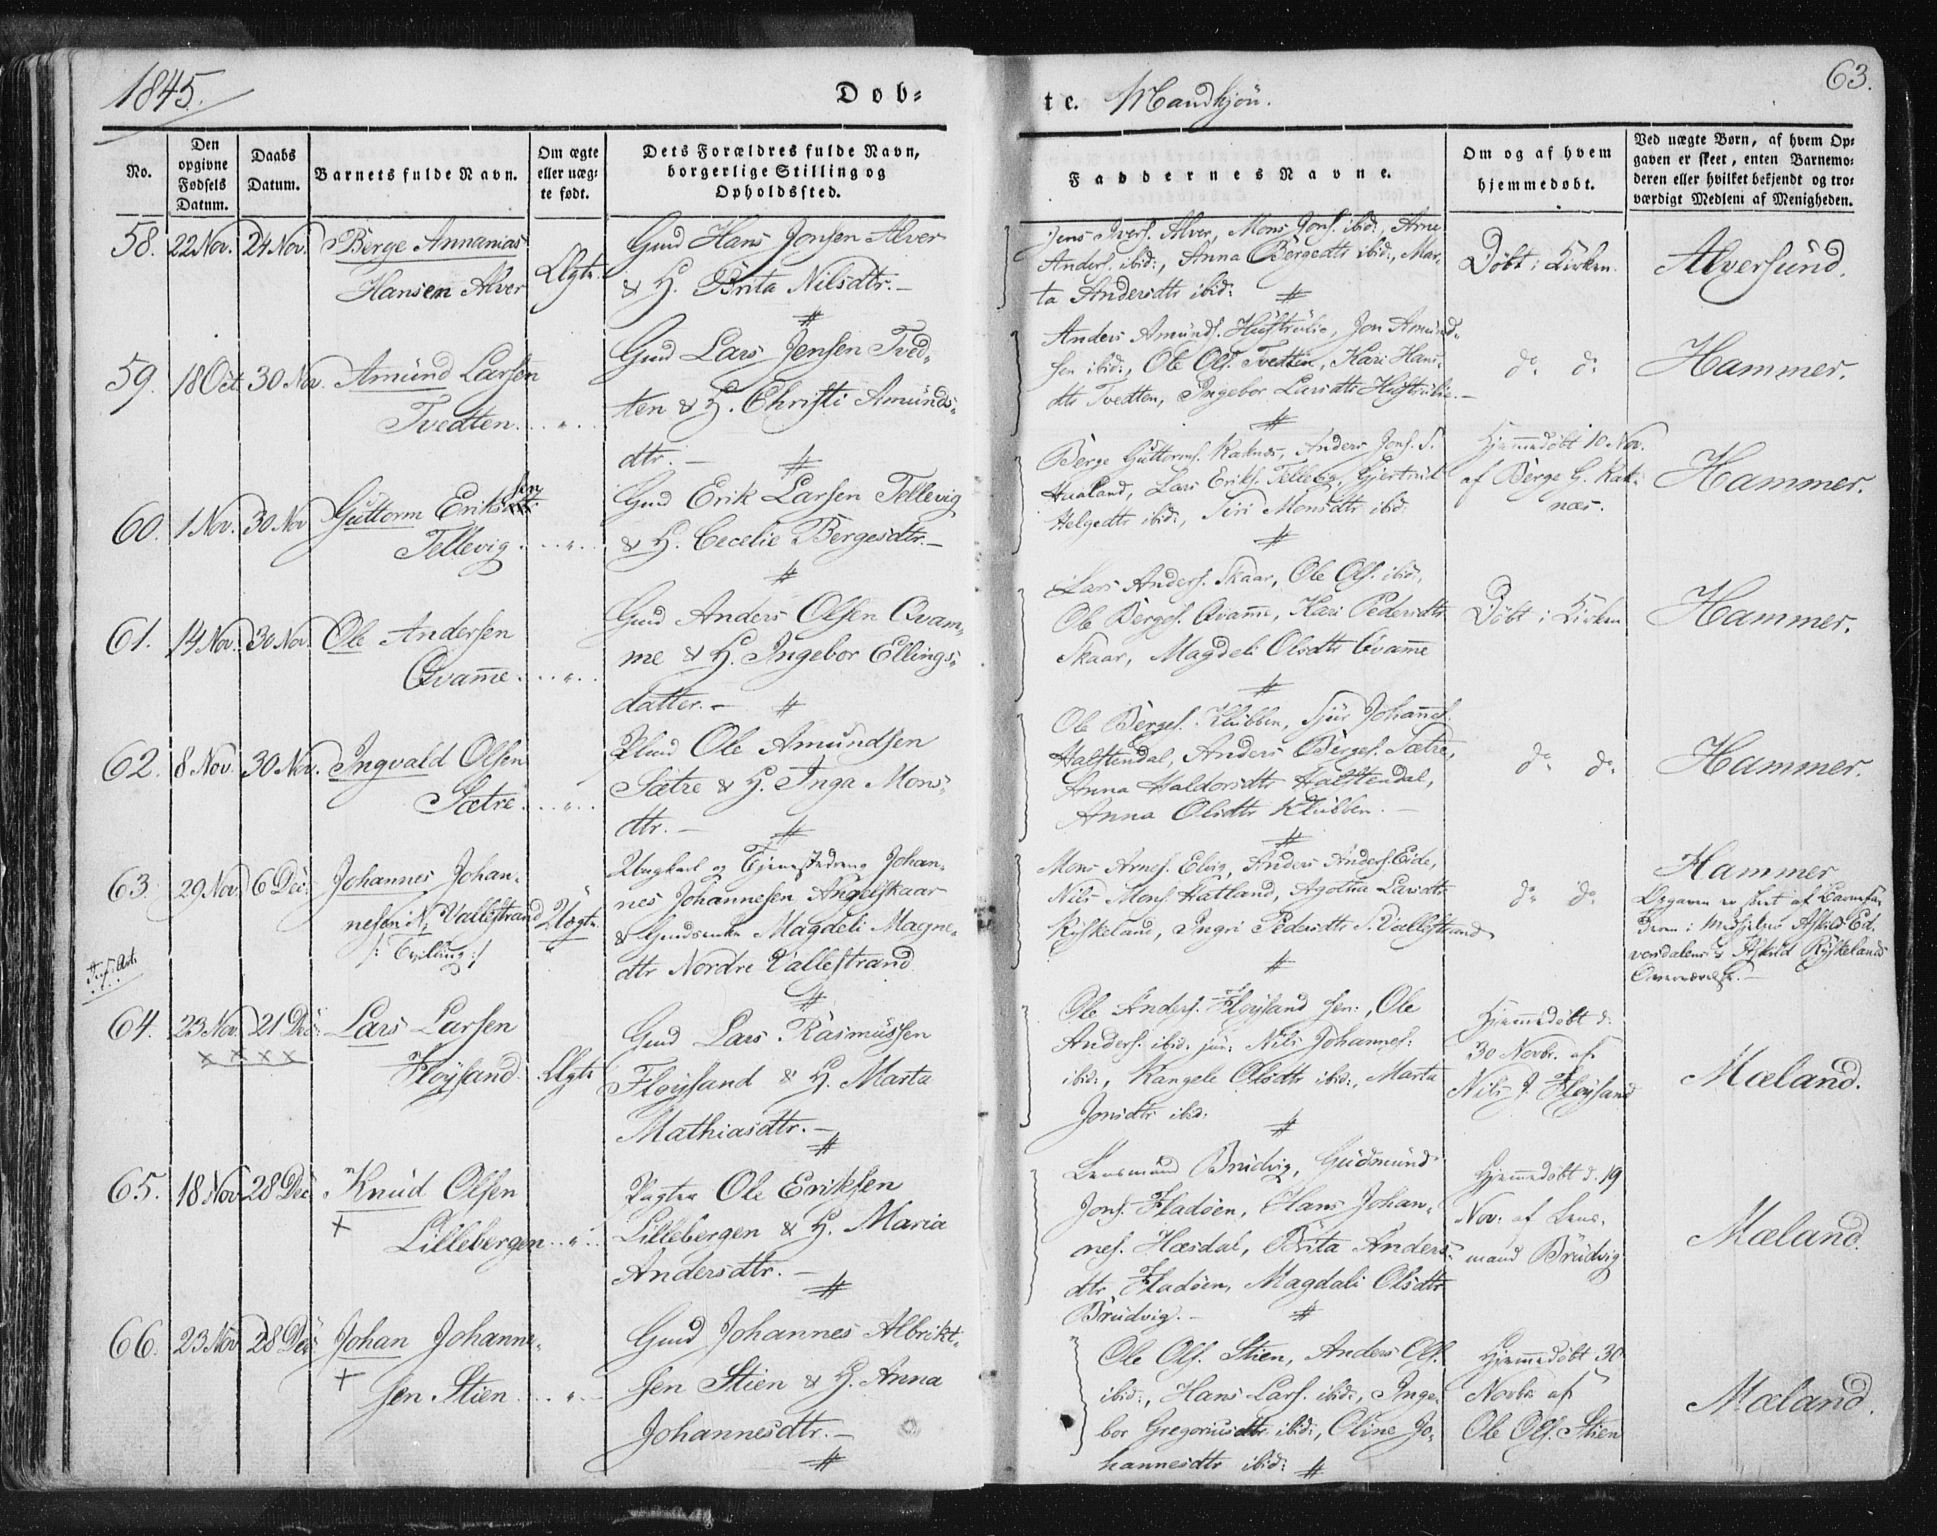 1845.
Dob-
te. Mandkjön.
63.
No.
Den
opgivne
Fødsels
Datum.
Daabs
Datum.
Barnets fulde Navn.
Om ægte
eller uæg-
te født.
Dets Forældres fulde Navn,
borgerlige Stilling og
Opholdssted.
Faddernes Navne.
Om og af hvem
hjemmedøbt.
Ved uægte Børn, af hvem Op-
gaven er skeet, enten Barnemo-
deren eller hvilket bekjendt og tro-
værdigt Medlem af Menigheden.
58. 22 Nov. 24 Nov. Berge Annanias
Hansen Alver
Ægte.
Gmd Hans Jonsen Alver
& H. Brita Nilsdtr.-
Jens Ivers. Alver, Mons Jons. ibid:, Arne
Anders. ibid:, Anna Bergedtr ibid:, Mar-
ta Andersdtr ibid:
Döbt i Kirken.
Alversund.
59. 18 Oct. 30 Nov. Amund Larsen
Tvedten. . . " . .
Gmd Lars Jensen Tved-
ten & H. Christi Amunds-
dtr. -
Anders Amunds. Hustrulie, Jon Amund-
sen ibid:, Ole Ols. Tvedten, Kari Hans-
dtr Tvedten, Ingebor Larsdtr Hustrulie.-
do do
Hammer.
60. 1 Nov. 30 Nov Guttorm Eriksen
Tellevig. . . " . .
Gmd Erik Larsen Tellevig
& H. Cecelie Bergesdtr.-
Berge Guttorms. Kaknæs, Anders Jons. S.
Hualand, Lars Eriks. Tellevig, Gjertrud
Helgedtr ibid:, Siri Monsdtr ibid.
Hjemmedöbt 10 Nov.
af Berge G. Kak-
næs.
Hammer.
61. 14 Nov. 30 Nov. Ole Andersen
Qvamme. . . " . .
Gmd Anders Olsen Qvam-
me & H. Ingebor Ellings-
datter. -
Lars Anders. Skaar, Ole Ols. ibid:,
Ole Berges. Qvamme, Kari Pedersdtr
Skaar, Magdeli Olsdtr Qvamme
Döbt i Kirken
Hammer.
62. 8 Nov. 30 Nov. Ingvald Olsen
Sætre. . . " . .
Ole Amundsen
Sætre & H. Inga Mons-
dtr. -
Ole Berges. Klubben, Sjur Johannes.
Halstendal, Anders Berges. Sætre,
Anna Haldorsdtr Halstendal,
Anna Olsdtr Klubben. -
do do
Hammer.
63. 29 Nov. 6 Dec. Johannes Johan-
nesen N. Vallestrand
/: Tvilling :/
Uægte.
Ungkarl og Tjenestedreng Johan-
nes Johannesen Angelskaar
& Gmdsenke Magdeli Magne-
dtr Nordre Vallestrand
Mons Arnes. Elvig, Anders Anders. Eide,
Nils Mons. Hatland, Agotha Larsdtr
Ryskeland, Ingri Pedersdtr S. Vallestrand
do do
Hammer
Opgaven er skeet af Barnefa-
deren i Askild Ryskelands
Overværelse. -
64. 23 Nov. 21 Dec. Lars Larsen
Flöysand.
Ægte
Gmd Lars Rasmussen
Flöysand & H. Marta
Mathiasdtr. -
Ole Anders. Flöysand sen:, Ole
Anders. ibid: jun: Nils Johannes:
ibid:, Rangele Olsdtr ibid:, Marta
Jonsdtr ibid:
Hjemmedöbt d.
30 Novbr. af
Nils J. Flöysand
Mæland.
65. 18 Nov 28 Dec Knud Olsen
+
Lillebergen . . " . .
Pagter Ole Eriksen
Lillebergen & H. Maria
Andersdtr. -
Lensmand Brudvig, Gudmund
Jons. Fladöen, Hans Johan-
nes. Hæsdal, Brita Anders-
dtr Fladöen, Magdali Olsdtr
Brudvig. -
Hjemmedöbt d. 19
Nov. af Lens-
mand Brudvig
Mæland.
66. 23 Nov 28 Dec. Johan Johanne-
+
sen Stien . . " . .
Gmd Johannes Albrikt-
sen Stien & H. Anna
Johannesdtr. -
Ole Ols. Stien, Anders Ols.
ibid:, Hans Lars. ibid:, Inge-
bor Gregoriusdtr ibid:, Oline Jo-
hannesdtr ibid:
Hjemmedöbt 30
Novbr af
Ole Ols. Stien
Mæland.